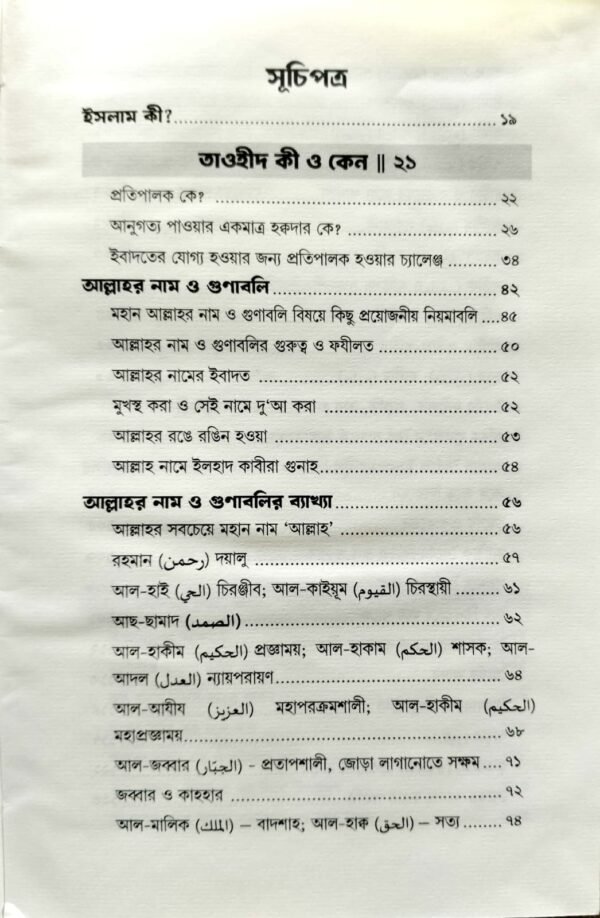 সূচিপত্র
ইসলাম কী?..................................................................১৯
তাওহীদ কী ও কেন || ২১
প্রতিপালক কে? ............................................................ ২২
আনুগত্য পাওয়ার একমাত্র হক্বদার কে? ................................ ২৬
ইবাদতের যোগ্য হওয়ার জন্য প্রতিপালক হওয়ার চ্যালেঞ্জ .......... ৩৪
আল্লাহর নাম ও গুণাবলি.................................................. ৪২
মহান আল্লাহর নাম ও গুণাবলি বিষয়ে কিছু প্রয়োজনীয় নিয়মাবলি ....৪৫
আল্লাহর নাম ও গুণাবলির গুরুত্ব ও ফযীলত ........................... ৫০
আল্লাহর নামের ইবাদত .................................................. ৫২
মুখস্থ করা ও সেই নামে দু‘আ করা ..................................... ৫২
আল্লাহর রঙে রঙিন হওয়া ............................................... ৫৩
আল্লাহ নামে ইলহাদ কাবীরা গুনাহ..................................... ৫৪
আল্লাহর নাম ও গুণাবলির ব্যাখ্যা....................................... ৫৬
আল্লাহর সবচেয়ে মহান নাম ‘আল্লাহ’ ................................. ৫৬
রহমান (رحمن) দয়ালু ..................................................... ৫৭
আল-হাই (الحي) চিরঞ্জীব; আল-কাইয়ূম (القيوم) চিরস্থায়ী ......... ৬১
আছ-ছামাদ (الصمد)..................................................... ৬২
আল-হাকীম (الحكيم) প্রজ্ঞাময়; আল-হাকাম (الحكم) শাসক; আল-
আদল (العدل) ন্যায়পরায়ণ............................................... ৬৪
আল-আযীয (العزيز) মহাপরক্রমশালী; আল-হাকীম (الحكيم)
মহাপ্রজ্ঞাময়................................................................ ৬৮
আল-জব্বার (الجبّار) - প্রতাপশালী, জোড়া লাগানোতে সক্ষম .... ৭১
জব্বার ও কাহহার ........................................................ ৭২
আল-মালিক (الملك) – বাদশাহ; আল-হাক্ব (الحق) – সত্য ........ ৭৪